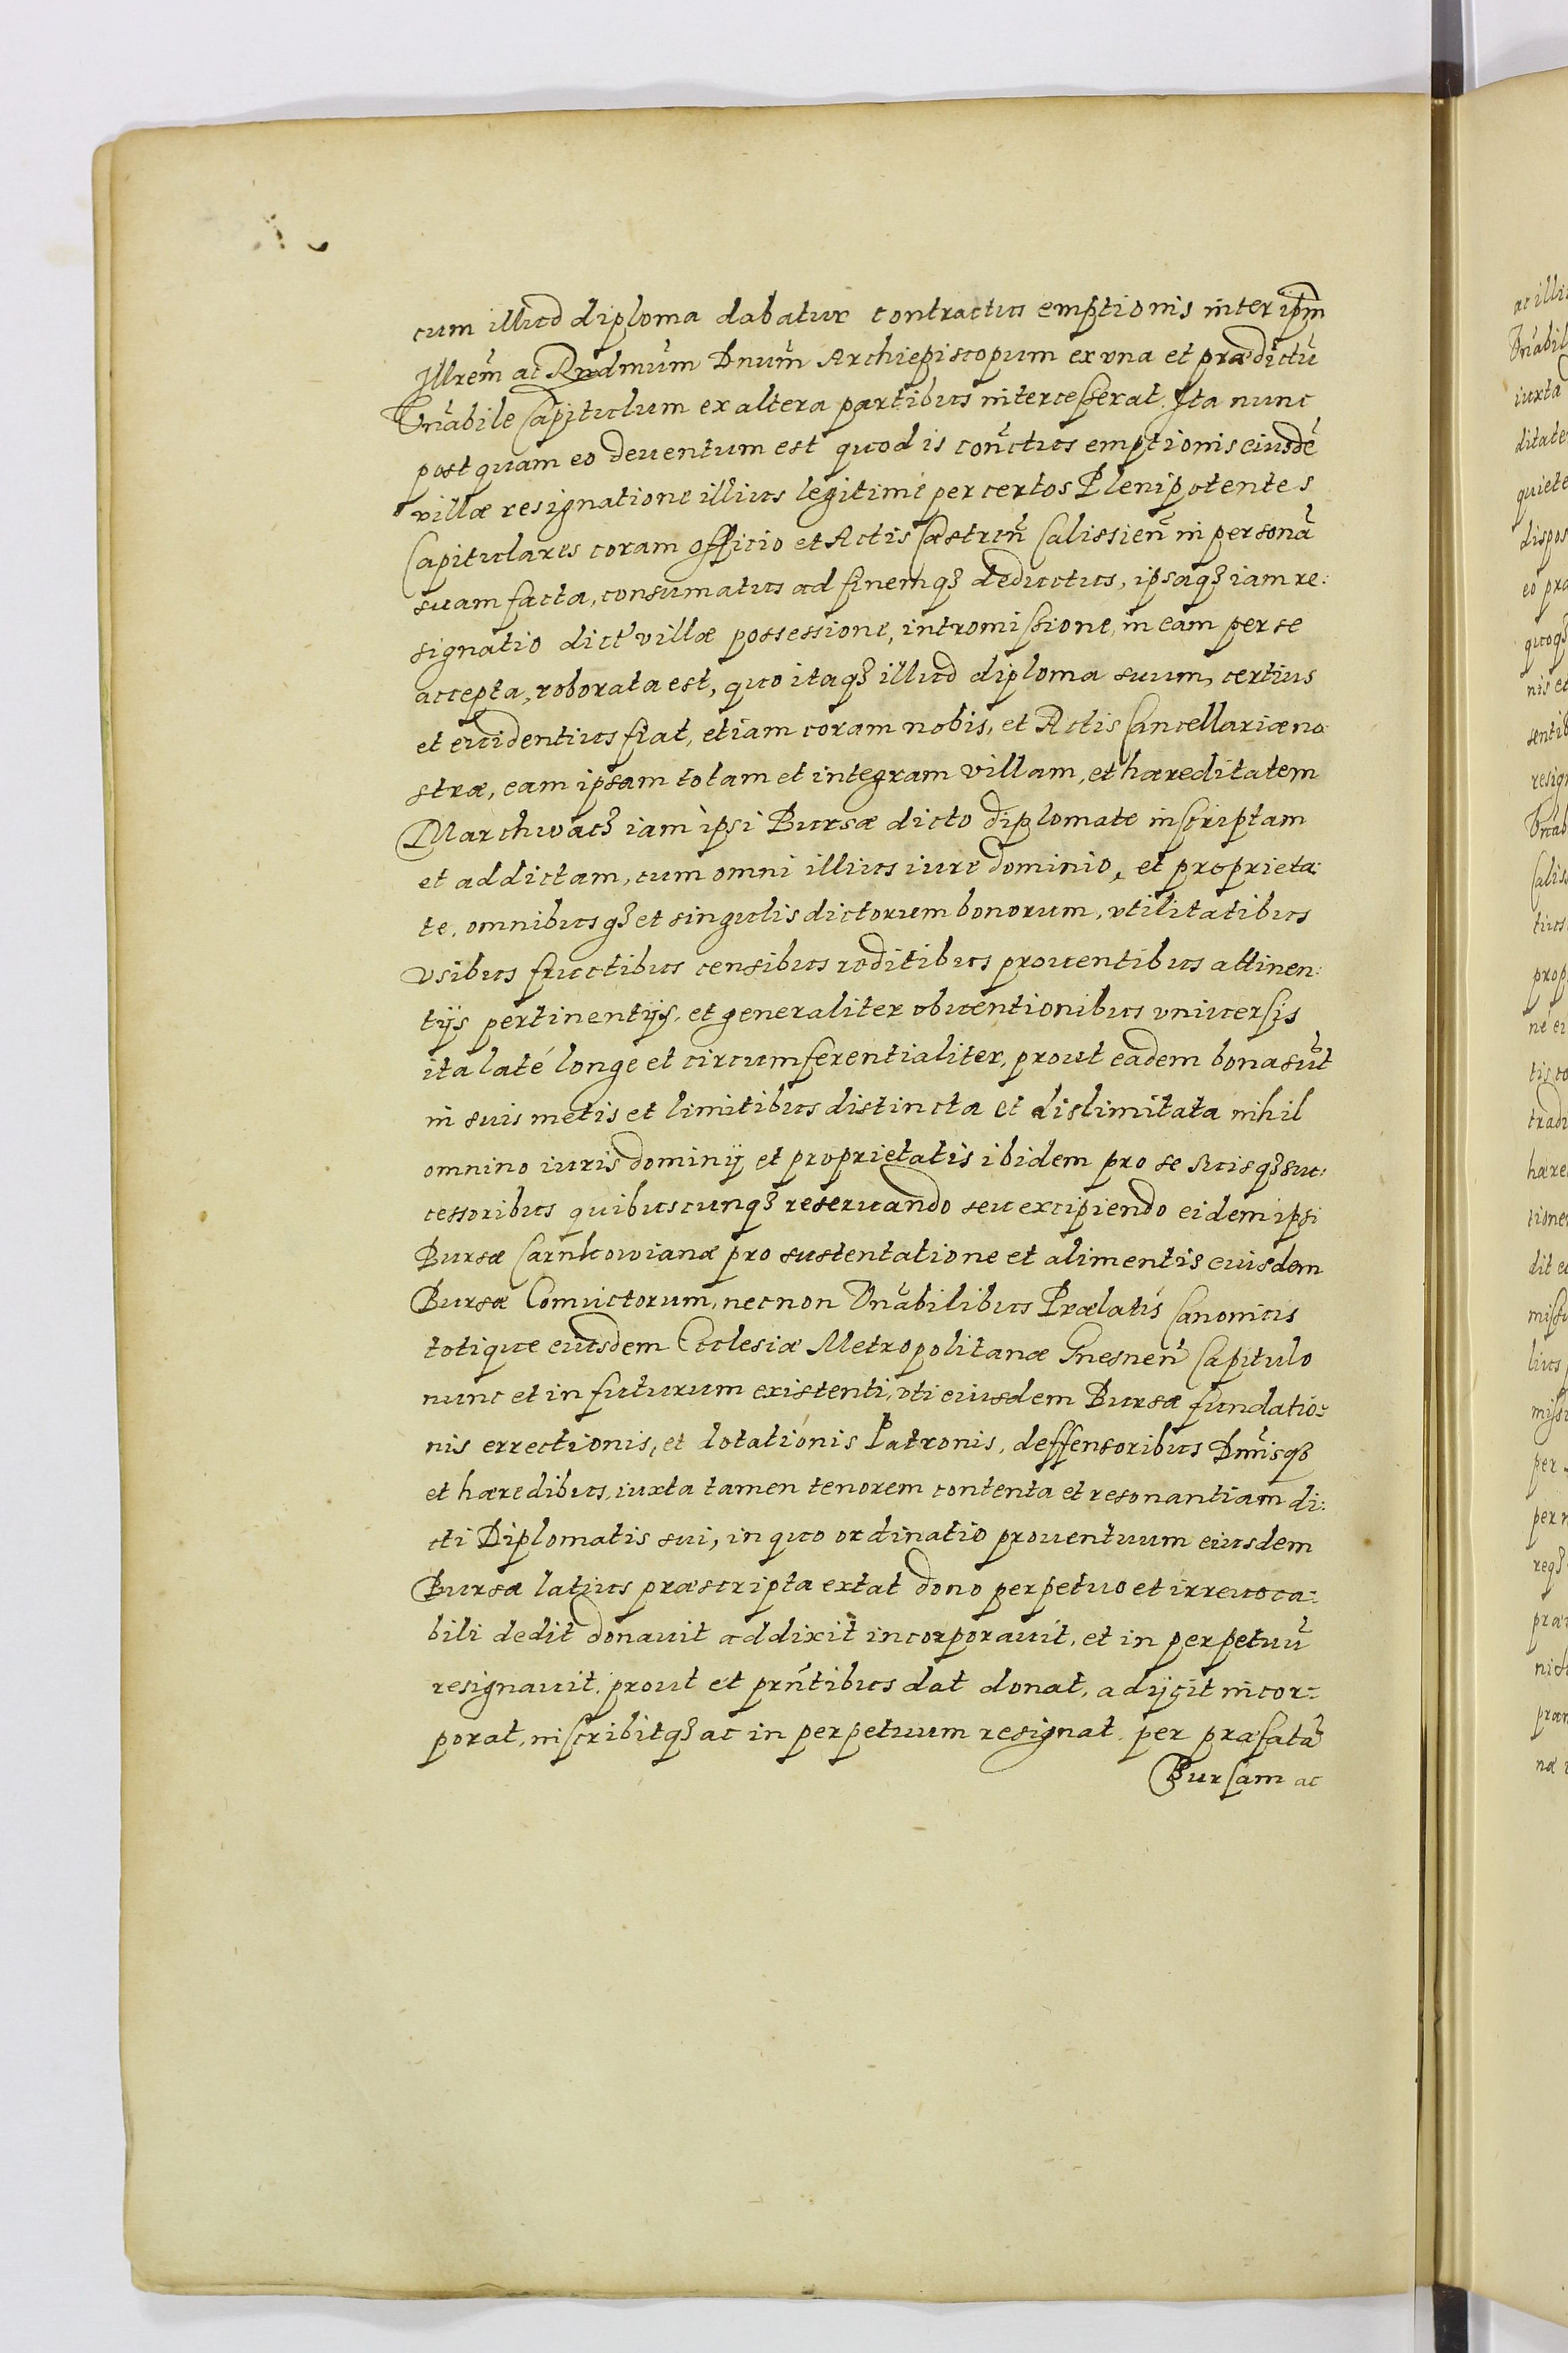 cum illud diploma dabatur contractus emptionis inter ipm̃
Jllrem̃ ac Rndmum̃ Dnum̃ Archiepiscopum ex vna et prædictũ
Vnãbile Capitulum ex altera partibus intercesserat. Jta nunc
post quam eo deuentum est quod is coñctus emptionis eiusdẽ
villæ resignatione illius legitimè per certos Plenipotentes
Capitulares coram officio et Actis Castreñ Calissieñ in personã
suam facta, consumatus ad finemqȝ deductus, ipsaqȝ iam re:
signatio dict' villæ possessione, intromissione, in eam per se
accepta, roborata est, quo itaqȝ illud diploma suum, certius
et euidentius fiat, etiam coram nobis, et Actis Cancellariæ no:
stræ, eam ipsam totam et integram villam, et hæreditatem
Marchwacȝ iam ipsi Bursæ dicto diplomate inscriptam
et addictam, cum omni illius iure dominio, et proprieta:
te, omnibusqȝ et singulis dictorum bonorum, vtilitatibus
vsibus fructibus censibus reditibus prouentibus attinen:
tijs pertinentijs, et generaliter obuentionibus vniuersis
ita laté longe et circumferentialiter, prout eadem bona sũt
in suis metis et limitibus distincta et dislimitata nihil
omnino iuris dominij et proprietatis ibidem pro se suisqȝ suc:
cessoribus quibuscunqȝ reseruando seu excipiendo eidem ipsi
Bursæ Carnkowianæ pro sustentatione et alimentis euisdem
Bursæ Conuictorum, necnon Vnãbilibus Prælatis Canonicis
totique eiusdem Ecclesiæ Metropolitanæ Gnesneñ Capitulo
nunc et in futurum existenti, vti eiusdem Bursæ fundatio:
nis errectionis, et dotationis Patronis, deffensoribus Dnĩsqȝ
et hæredibus, iuxta tamen tenorem contenta et resonantiam di:
cti Diplomatis sui, in quo ordinatio prouentuum eiusdem
Bursæ latius præscripta extat dono perpetuo et irreuoca:
bili dedit donauit addixit incorporauit, et in perpetuũ
resignauit, prout et prñtibus dat donat, adijcit incor:
porat, inscribitqȝ ac in perpetuum resignat per præfatã
Bursam ac